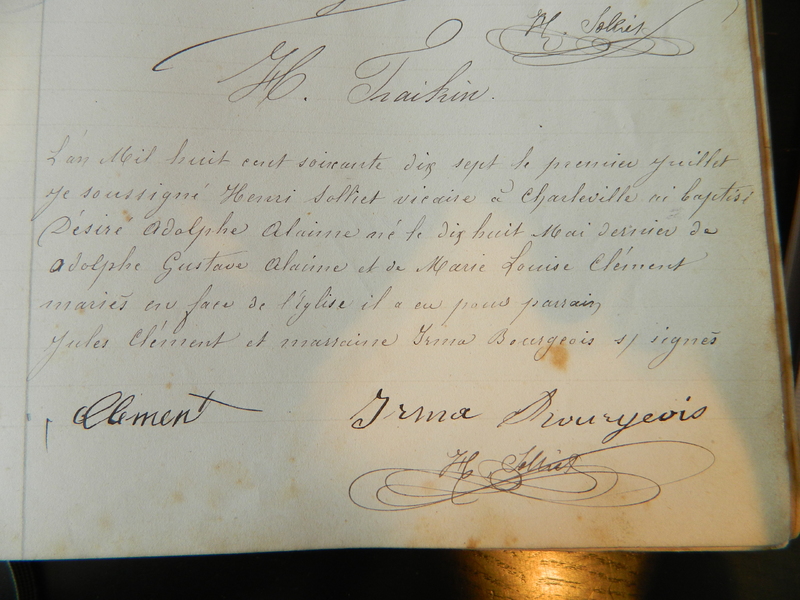 H. Solliet
H. Traikin.
L'an Mil huit cent soixante dix sept le premier juillet
je soussigné Henri Solliet vicaire à Charleville ai baptisé
Désiré Adolphe Alaime né le dix huit Mai dernier de
Adolphe Gustave Alaime et de Marie Louise Clément
mariés en face de l'église il a eu pour parrain
Jules Clément et marraine Irma Bourgeois s/ signés
Clement Irma Bourgeois
H. Solliet